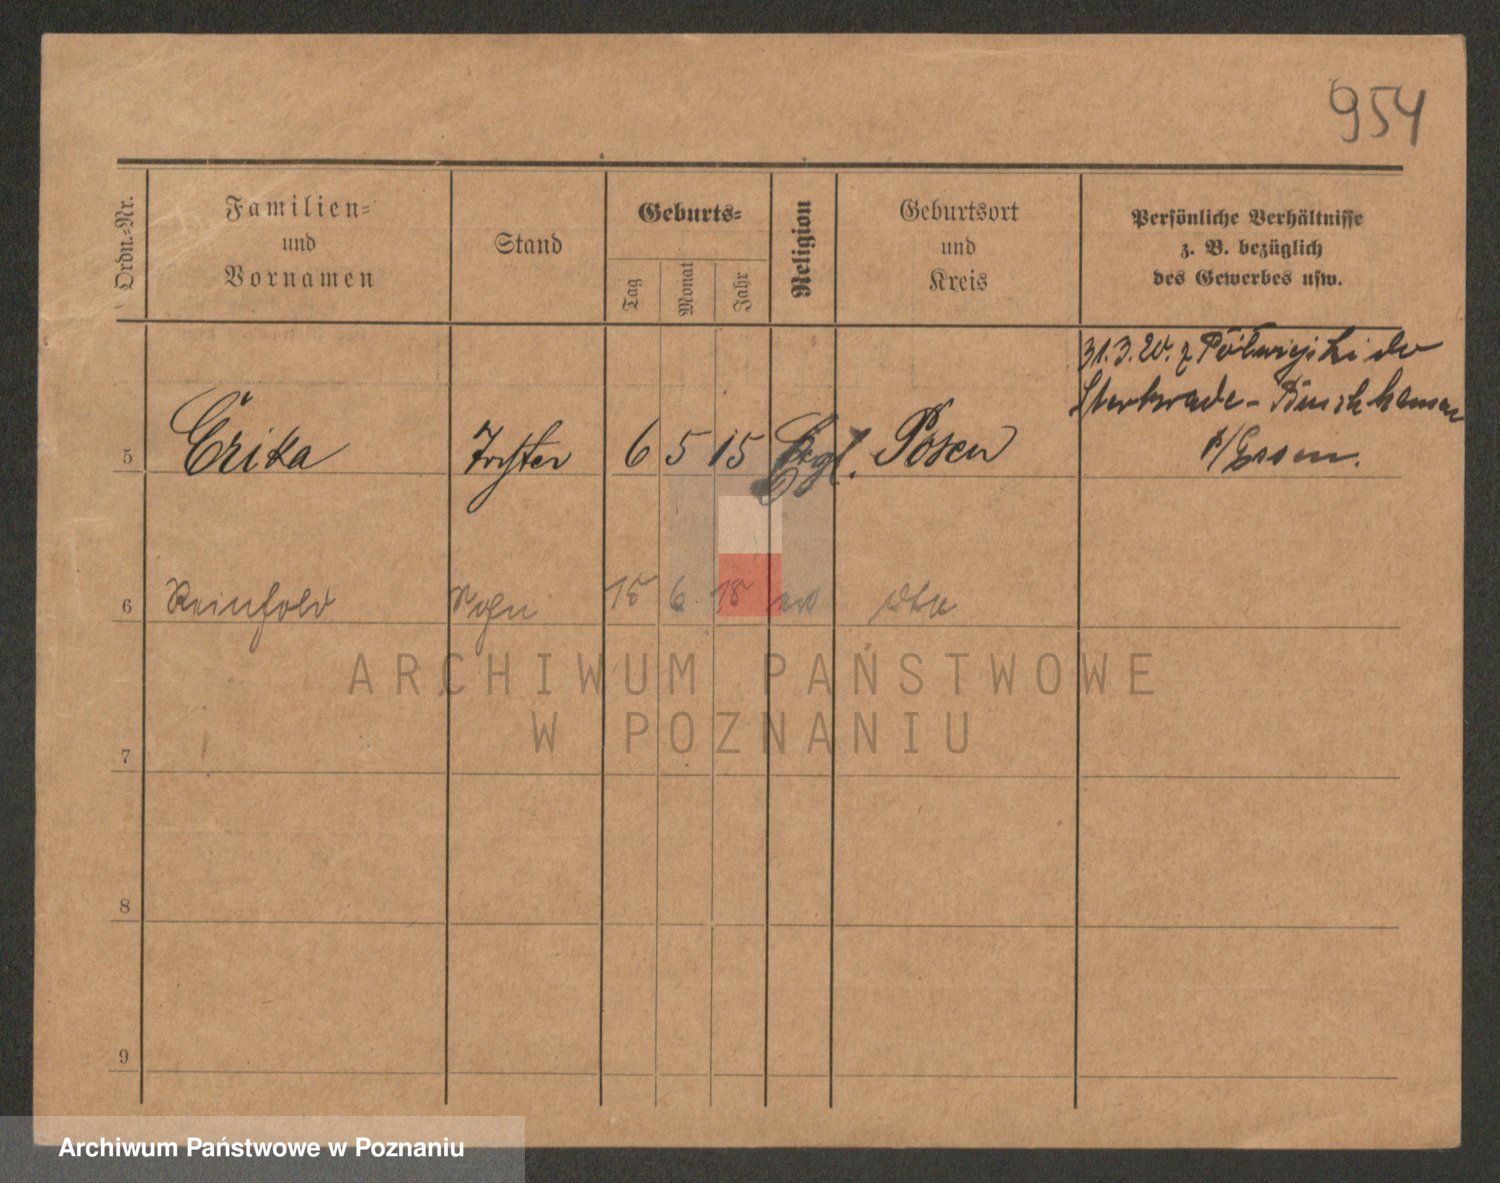 954
Ordn.-Nr.
Familien-
und
Vornamen
Stand
Geburts-
Tag
Monat
Jahr
Religion
Geburtsort
und
Kreis
Persönliche Verhältnisse
z. B. bezüglich
des Gewerbes usw.
31.3.20. z Półwiejski do
Sterkrade - Buschhausen
b/Essen.
5 Erika Tochter 6 5 15 Posen
6 Reinhold Sohn 15 6 18
7
8
9
ARCHIWUM PAŃSTWOWE
W POZNANIU
Archiwum Państwowe w Poznaniu